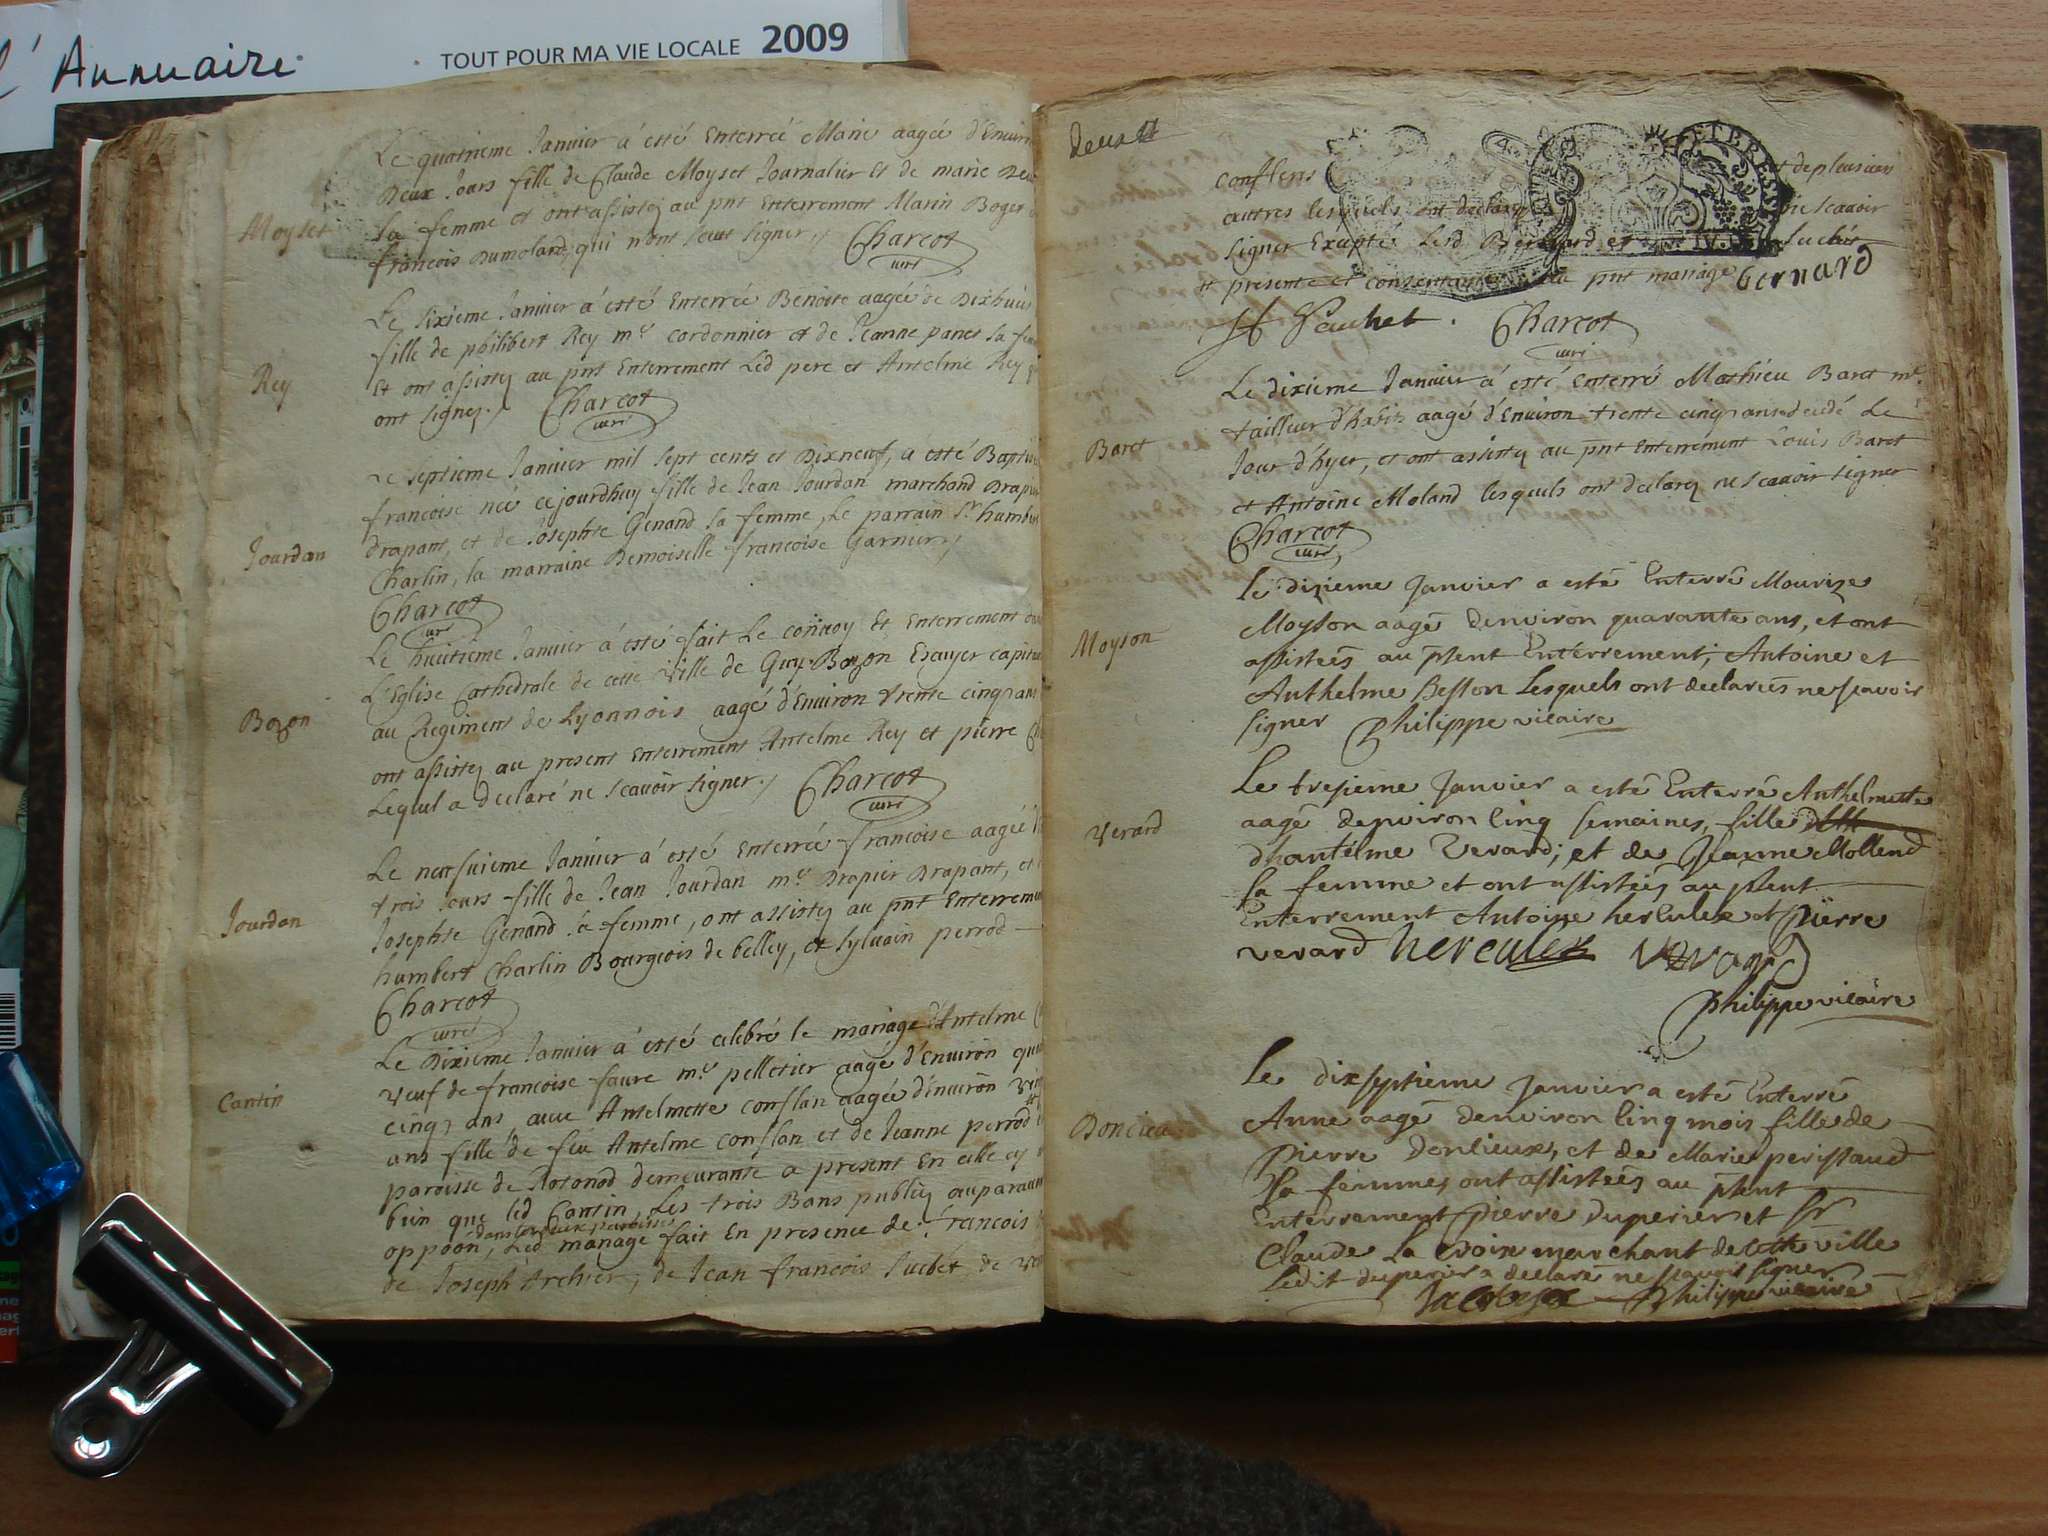 l'Annuaire
TOUT POUR MA VIE LOCALE 2009
Le quatrieme Janvier á esté Enterreé Marie aagée d'Environ
Deux Jours fille de Claude Moyset Journalier Et de marie
Moyset
sa femme et ont assistez au pnt Enterrement Marin Boger
francois Dumoland, qui n'ont sceut signer ./ Charcot
curé
Le sixieme Janvier á esté Enterreé Benoite aagée de Dixhuit
fille de philibert Rey me cordonnier et de Jeanne panet sa fem
Rey
Et ont assistez au pnt Enterrement Led pere et Antelme Rey
ont signez ./ Charcot
curé
Le septieme Janvier mil sept cents et Dixneuf, á esté Baptisé
francoise née cejourdhuy fille de Jean Jourdan marchand Drapier
Jourdan
drapant, et de Josephte Genand sa femme, Le parrain Sr humbert
Charlin, la marraine Demoiselle francoise Garnier ./
Charcot
curé
Le huitieme Janvier á esté fait Le conuoy Et Enterrement dans
L'Eglise Cathedrale de cette Ville de Guy Bozon Escuyer capitai
Bozon
au Regiment de Lyonnois aagé d'Environ trente cinq ans
ont assistez au present Enterrement Antelme Rey et pierre
Lequel a declaré ne scauoir signer ./ Charcot
curé
Le neufuieme Janvier á esté Enterreé francoise aagée
trois Jours fille de Jean Jourdan me Drapier Drapant, et
Jourdan
Josephte Genand sa femme, ont assistez au pnt Enterrement
humbert Charlin Bourgeois de belley, et sylvain perrod
Charcot
curé
Le Dixieme Janvier á esté celebré le mariage d'Antelme
Veuf de francoise faure me pelletier aagé d'Environ
Cantin
cinq ans, auec Antelmette conflan aagée d'Environ
ans fille de feu Antelme conflan et de Jeanne perrod
paroisse de Rotonod demeurante a present En celle cy
bien que led Cantin, Les trois Bans publiez auparauant
dans les deux paroisses
oppoon, Led mariage fait En presence de francois
de Joseph Archier, de Jean francois Juchet de
deux
conflens et de plusieurs
autres lesquels ont declaré scauoir
signer Excepté Lesd Bernard et Juchet
et presente et consentante au pnt mariage bernard
Charcot
curé
Le dixieme Janvier á esté Enterré Mathieu Baret me
tailleur d'habits aagé d'Environ trente cinq ans decedé Le
Baret
Jour d'hyer, et ont assistez au pnt Enterrement Louis Baret
et Antoine Moland lesquels ont declarez ne scauoir signer
Charcot
curé
Le dixieme Janvier a esté Enterré Mourize
Moyson aagé denviron quarante ans, et ont
Moyson
assistees au pñent Enterrement, Antoine et
Anthelme Besson Lesquels ont declarees ne scavoir
signer Philippe vicaire
Le tresieme Janvier a esté Enterré Anthelmette
aagé denviron cinq semaines, fille
Verard
dhantelme Verard, et de Jeanne Mollend
sa femme et ont assistees au pñent
Enterrement Antoine hercules et pierre
verard hercules verard
Philippe vicaire
Le dixseptieme Janvier a esté Enterré
Anne aagé denviron cinq mois fille de
Doncieu
Pierre donlieux, et de Marie peristaud
sa femme, ont assistees au pñent
Enterrement Pierre duperier et Sr
Claude La croix marchant de cette ville
Ledit duperier a declaré ne scavoir signer
Philippe vicaire